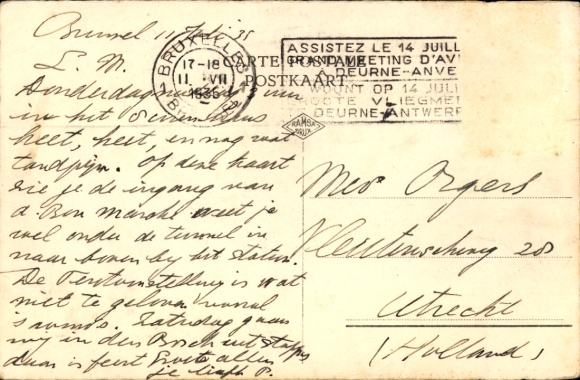 Brussel 11 Juli '35
L. M.
Donderdagmiddag
in het
heet, heet, en nog wat
tandpijn. Op deze kaart
zie je de ingang van
d. Bon Marché weet je
wel onder de tunnel in
naar boven bij het station.
De Tentoonstelling is wat
niet te geloven vooral
's avonds. Zaterdag gaan
wij in den Bosch uitstappen
daar is feest Groete allen
je liefh. P.
BRUXELLES
17-18
11 VII
1935
BRUSSEL
ASSISTEZ LE 14 JUILL
GRAND MEETING D'AV
DEURNE-ANVE
WOONT OP 14 JULI
GROOTE VLIEGMEE
DEURNE-ANTWERP
CARTE POSTALE
POSTKAART
Mevr Orgers
28
Utrecht
(Holland)